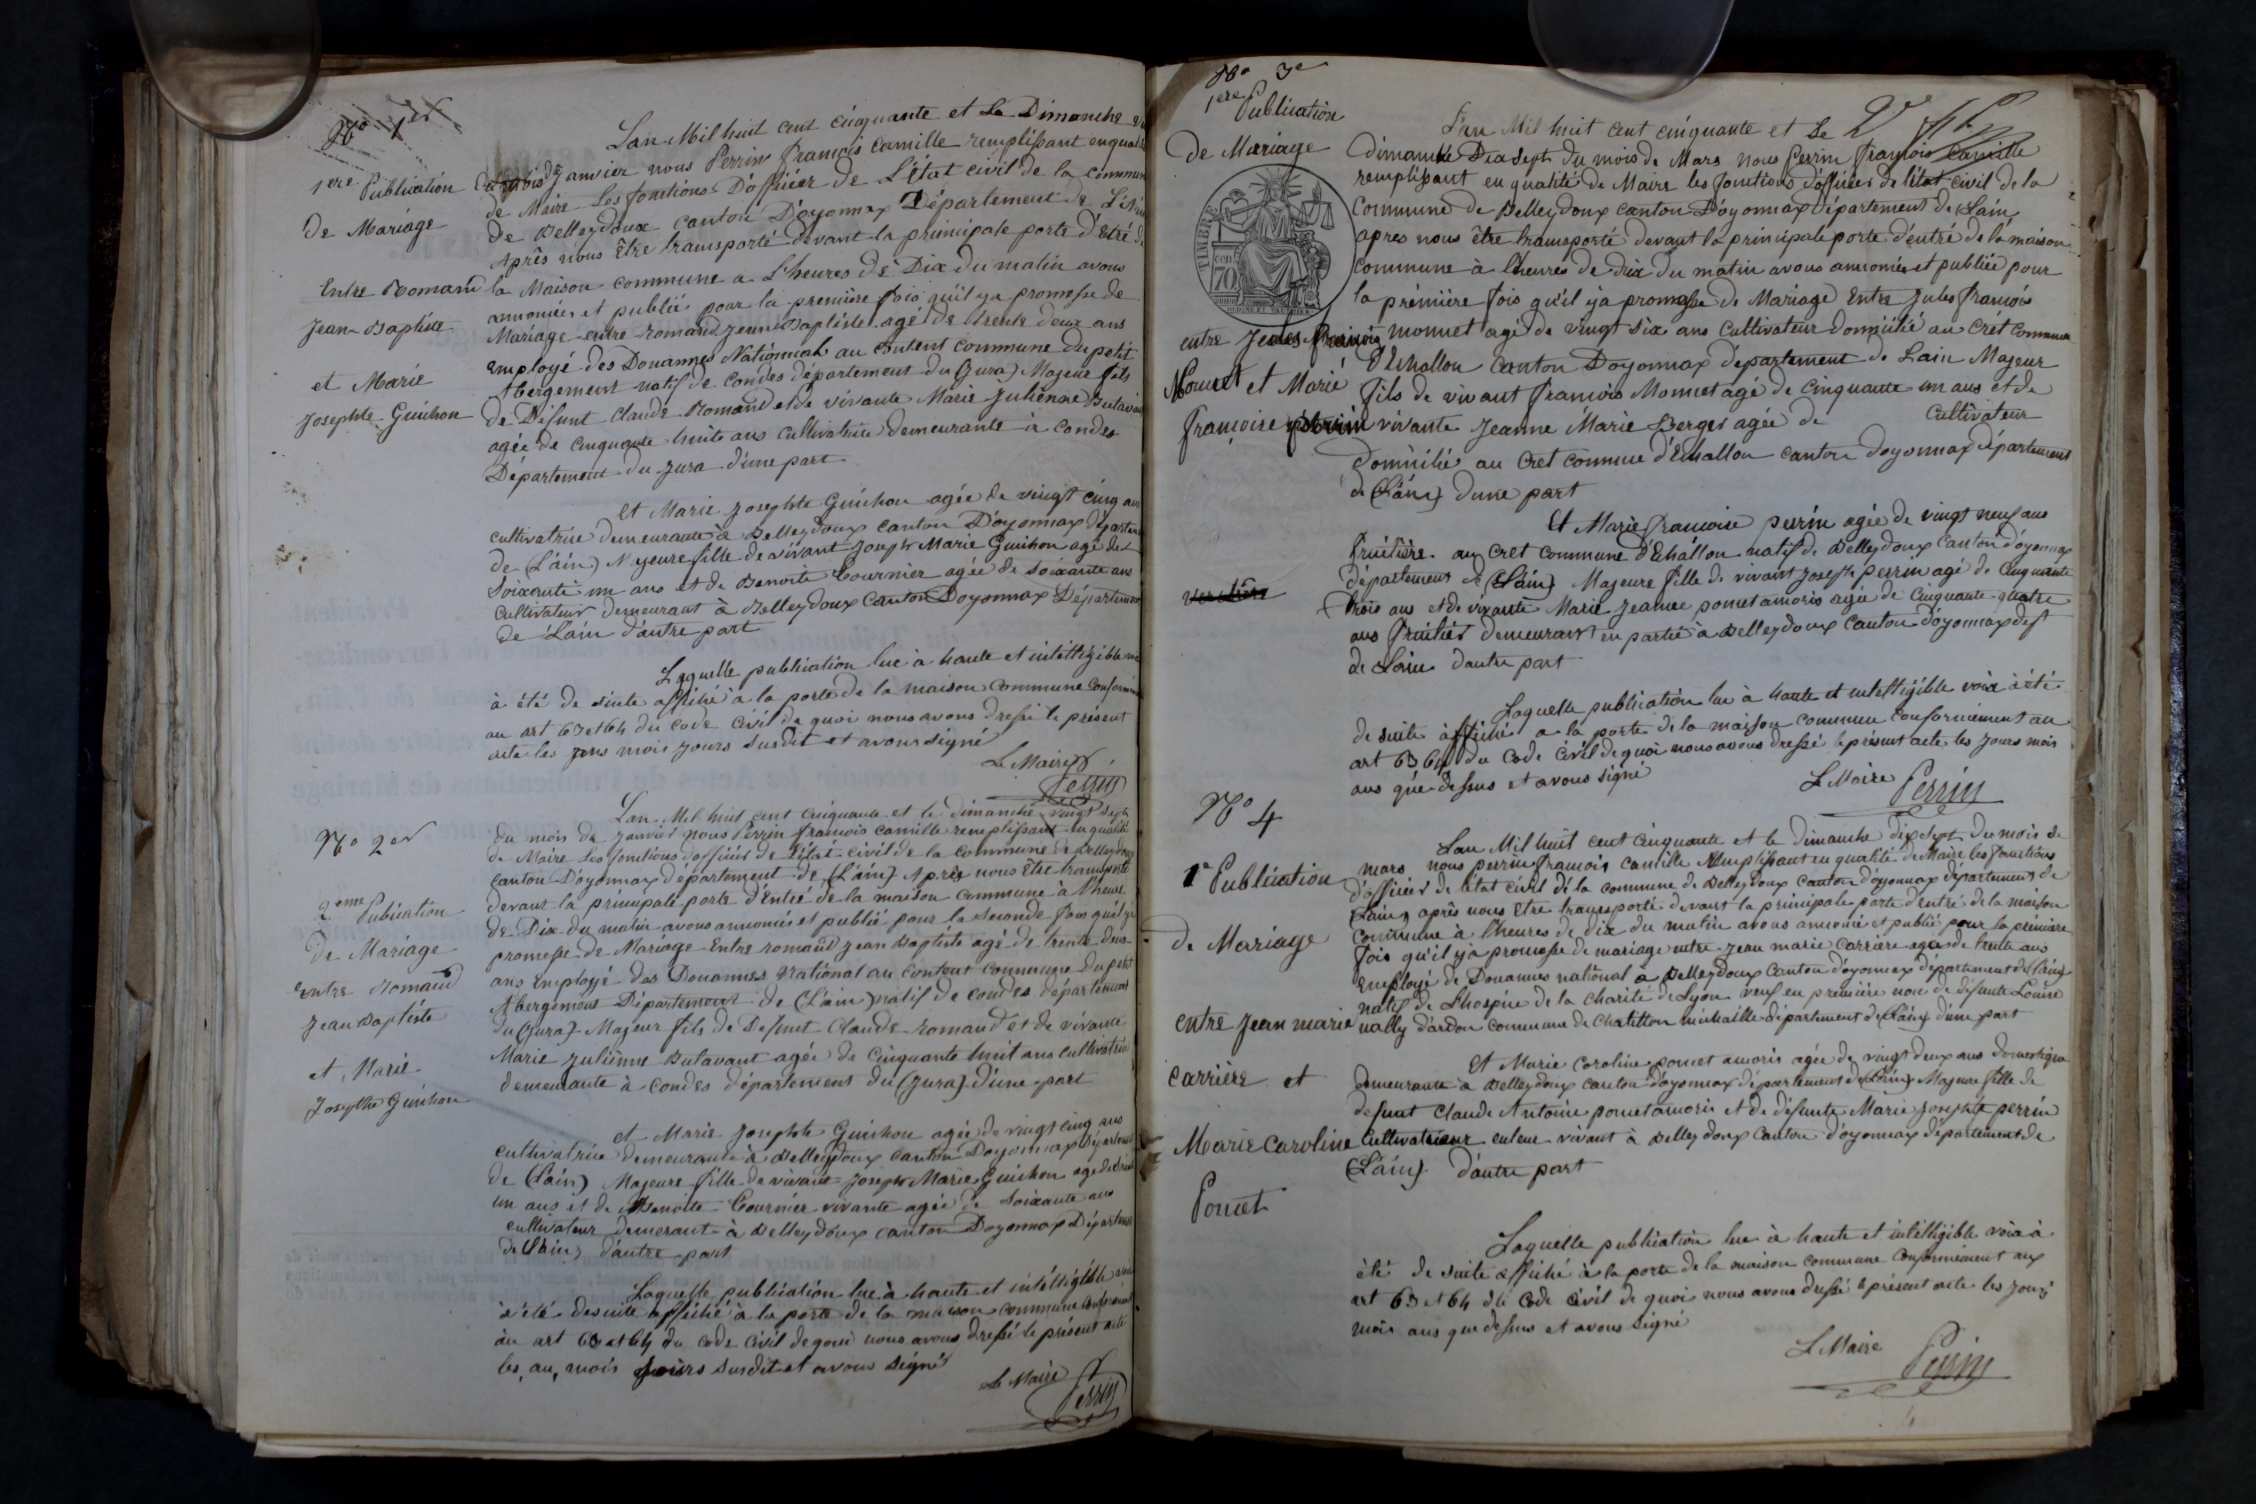 No 1er
1ere Publication
De Mariage
Entre Romand
Jean-Baptiste
et Marie
Josephte Guichon
L'an Mil huit cent cinquante et Le Dimanche
du mois de Janvier nous Perrin François Camille remplissant en qualité
de Maire Les fonctions D'officier de L'état civil de la commune
de Belleydoux canton D'oyonnax Département de L'ain
Après nous être transporté devant la principale porte d'Entré de
la Maison commune a L'heures de Dix du matin avons
annoncées et publié pour la première fois qu'il y a promesse de
Mariage entre Romand Jean Baptiste agé de trente deux ans
Employé des Douannes National au Content commune du petit
Abergement natif de Condes département du (Jura) Majeur fils
de Défunt Claude Romand et de vivante Marie Julienne Butavant
agée de cinquante huit ans cultivatrice demeurante à Condes
Département du Jura d'une part
Et Marie Josephte Guichon agée de vingt cinq ans
cultivatrice demeurante à Belleydoux canton D'oyonnax département
de (L'ain) Majeure fille de vivant Joseph Marie Guichon agé de
soixante un ans et de Benoite Tournier agée de soixante ans
cultivateur demeurant à Belleydoux Canton Doyonnax Département
de L'ain d'autre part
Laquelle publication lue à haute et intelligible voix
à été de suite affiché à la porte de la maison commune conformément
au art 63 et 64 du Code Civil de quoi nous avons dressé le présent
acte les jours mois jours susdit et avons signé
Le Maire
Perrin
No 2er
2eme Publication
De Mariage
entre Romand
Jean Baptiste
et Marie
Josephte Guichon
L'an Mil huit cent cinquante et le dimanche vingt sept
du mois de Janvier nous Perrin françois camille remplissant en qualité
de Maire Les fonctions d'officier de l'état civil de la commune de Belleydoux
Canton D'oyonnax département de (L'ain) Après nous être transporté
devant la principale porte d'Entré de la maison commune à l'heure
de Dix du matin avons annoncés et publié pour la seconde fois qu'il y a
promesse de Mariage Entre romand Jean Baptiste agé de trente deux
ans Employé des Douannes National au Content commune du petit
Abergement Département de (L'ain) natif de condes département
du (Jura) Majeur fils de Défunt Claude romand et de vivante
Marie Julienne Butavant agée de Cinquante huit ans cultivatrice
demeurante à Condes département du (Jura) d'une part
et Marie Josephte Guichon agée de vingt cinq ans
cultivatrice demeurante à Belleydoux canton Doyonnax département
de (L'ain) Majeure fille de vivant Joseph Marie Guichon agé de
un ans et de Benoite Tournier vivante agée de soixante ans
cultivateur demeurant à Belleydoux canton Doyonnax Département
de L'ain d'autre part
Laquelle publication lue à haute et intelligible voix
à été de suite affiché à la porte de la maison commune conformément
au art 63 et 64 du Code Civil de quoi nous avons dressé le présent acte
les, an, mois jours susdit et avons signé
Le Maire
Perrin
No 3e
1ere Publication
De Mariage
TIMBRE
70
entre Jules François
Monnet et Marie
françoise perrin
L'an Mil huit cent cinquante et Le
dimanche Dix sept du mois de Mars nous Perrin François Camille
remplissant en qualité de Maire les fonctions d'officier de l'état civil de la
Commune de Belleydoux canton D'oyonnax département de L'ain,
apres nous être transporté devant la principale porte d'entré de la maison
commune à l'heures de dix du matin avons annoncées et publiée pour
la première fois qu'il y a promesse de Mariage Entre Jules François
monnet agé de vingt six ans Cultivateur domicilié au Crét commune
d'Echallon Canton Doyonnax departement de L'ain Majeur
fils de vivant François Monnet agé de cinquante un ans et de
vivante Jeanne Marie Berger agée de Cultivateur
Domicilié au Cret commune d'Echallon canton doyonnax département
de (L'ain) d'une part
Et Marie françoise perrin agée de vingt neuf ans
fruitière au Cret commune d'Echallon natif de Belleydoux Canton d'oyonnax
département de (L'ain) Majeure fille de vivant Joseph perrin agé de cinquante
trois ans et de vivante Marie Jeanne poncetamoris agée de Cinquante quatre
ans fruitier demeurant en partie à Belleydoux Canton d'oyonnax dept
de L'ain d'autre part
Laquelle publication lue à haute et intelligible voix à été
de suite affiché a la porte de la maison commune conformément au
art 63 64 du Code Civil de quoi nous avons dressé le présent acte les jours mois
ans que dessus et avons signé
Le Maire Perrin
No 4
1e Publication
de Mariage
entre Jean marie
carrière et
Marie Caroline
Poncet
L'an Mil huit cent Cinquante et le dimanche dix sept du mois de
mars nous perrin françois camille remplissant en qualité de Maire les fonctions
d'officier de l'état civil de la commune de Belleydoux Canton d'oyonnax département de
L'ain, après nous être transporté devant la principale porte d'entré de la maison
commune à l'heures de dix du matin avons annoncé et publié pour la première
fois qu'il y a promesse de mariage entre Jean marie Carrière agé de trente ans
Employé de Douannes national à Belleydoux Canton d'oyonnax département de (L'ain)
natif de L'hospice de la charité de Lyon veuf en première noce de défunte Louise
vally d'ardon commune de Chatillon michaille département de (L'ain) d'une part
Et Marie Caroline poncet amoris agée de vingt deux ans domestique
demeurante à Belleydoux canton d'oyonnax département de (L'ain) Majeure fille de
defunt Claude Antoine poncetamoris et de défunte Marie Josephte perrin
Cultivateur eu leur vivant à Belleydoux Canton d'oyonnax département de
(L'ain) d'autre part
Laquelle publication lue à haute et intelligible voix à
été de suite affiché à la porte de la maison commune conformément aux
art 63 et 64 du Code Civil de quoi nous avons dressé le présent acte les jours
mois ans que dessus et avons signé
Le Maire Perrin